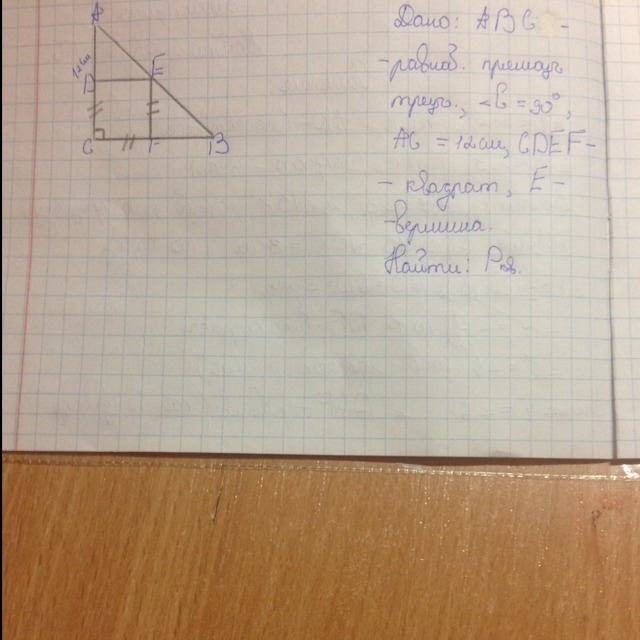 A
Дано: ABC -
12см
- равноб. прямоуг.
D E
треуг., <C = 90°,
AC = 12см, CDEF -
C F B
- квадрат, E -
- вершина.
Найти: Pкв.